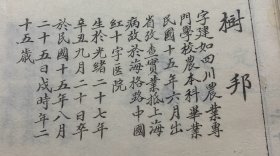 樹邦
字建如四川農業專
門學校農本科畢業
民國十五年六月出
省攷查實業抵上海
病故於海格路中國
紅十字医院
生於光緒二十七年
辛丑九月二十日卒
於民國十五年八月
二十五日戌時年二
十五歲